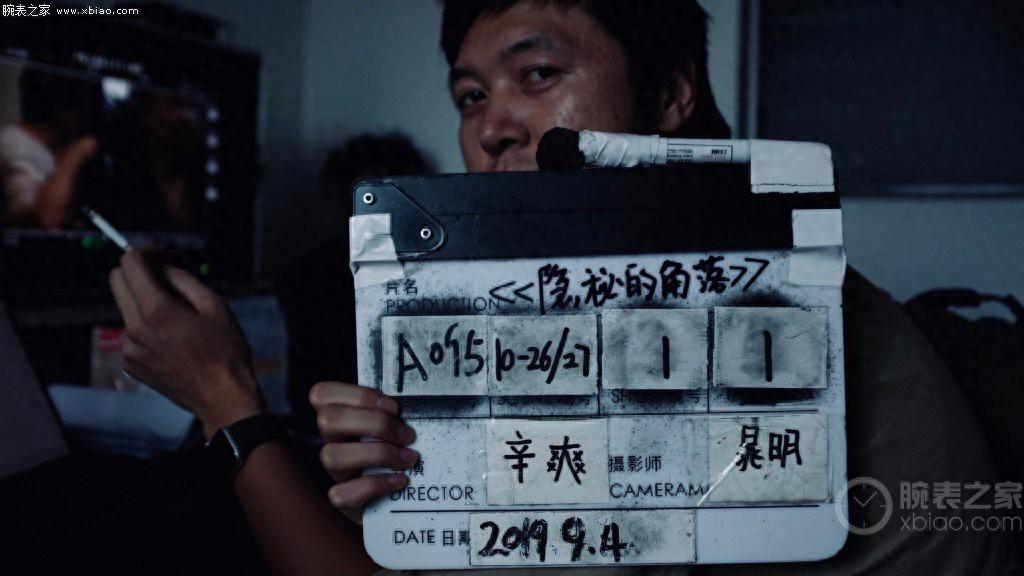 腕表之家 www.xbiao.com
片名
PRODUCTION <<隐秘的角落>>
A095 10-26/27 1 1
辛爽 摄影师 晁明
DIRECTOR CAMERAM
DATE 日期 2019 9.4
腕表之家
xbiao.com